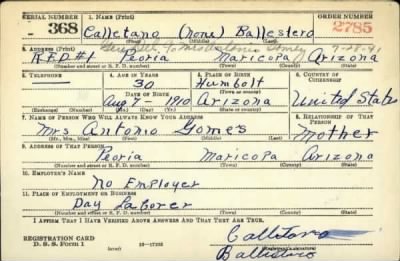 SERIAL NUMBER 1. NAME (Print) ORDER NUMBER
368 Calletano (none) Ballestero 2785
7-28-41
2. ADDRESS (Print)
R.F.D #1 Peoria Maricopa Arizona
(Number and street or R. F. D. number) (Town) (County) (State)
3. TELEPHONE 4. AGE IN YEARS 5. PLACE OF BIRTH 6. COUNTRY OF CITIZENSHIP
30 Humbolt
DATE OF BIRTH (Town or county)
Aug 7- 1910 Arizona United States
(Exchange) (Number) (Mo.) (Day) (Yr.) (State or country)
7. NAME OF PERSON WHO WILL ALWAYS KNOW YOUR ADDRESS 8. RELATIONSHIP OF THAT PERSON
Mrs Antonio Gomes Mother
(Mr., Mrs., Miss) (First) (Middle) (Last)
9. ADDRESS OF THAT PERSON
Peoria Maricopa Arizona
(Number and street or R. F. D. number) (Town) (County) (State)
10. EMPLOYER'S NAME
No Employer
11. PLACE OF EMPLOYMENT OR BUSINESS
Day Laborer
(Number and street or R. F. D. number) (Town) (County) (State)
I AFFIRM THAT I HAVE VERIFIED ABOVE ANSWERS AND THAT THEY ARE TRUE.
REGISTRATION CARD
D. S. S. Form 1 16-17105 (Registrant's signature)
Callitano
Ballistaro